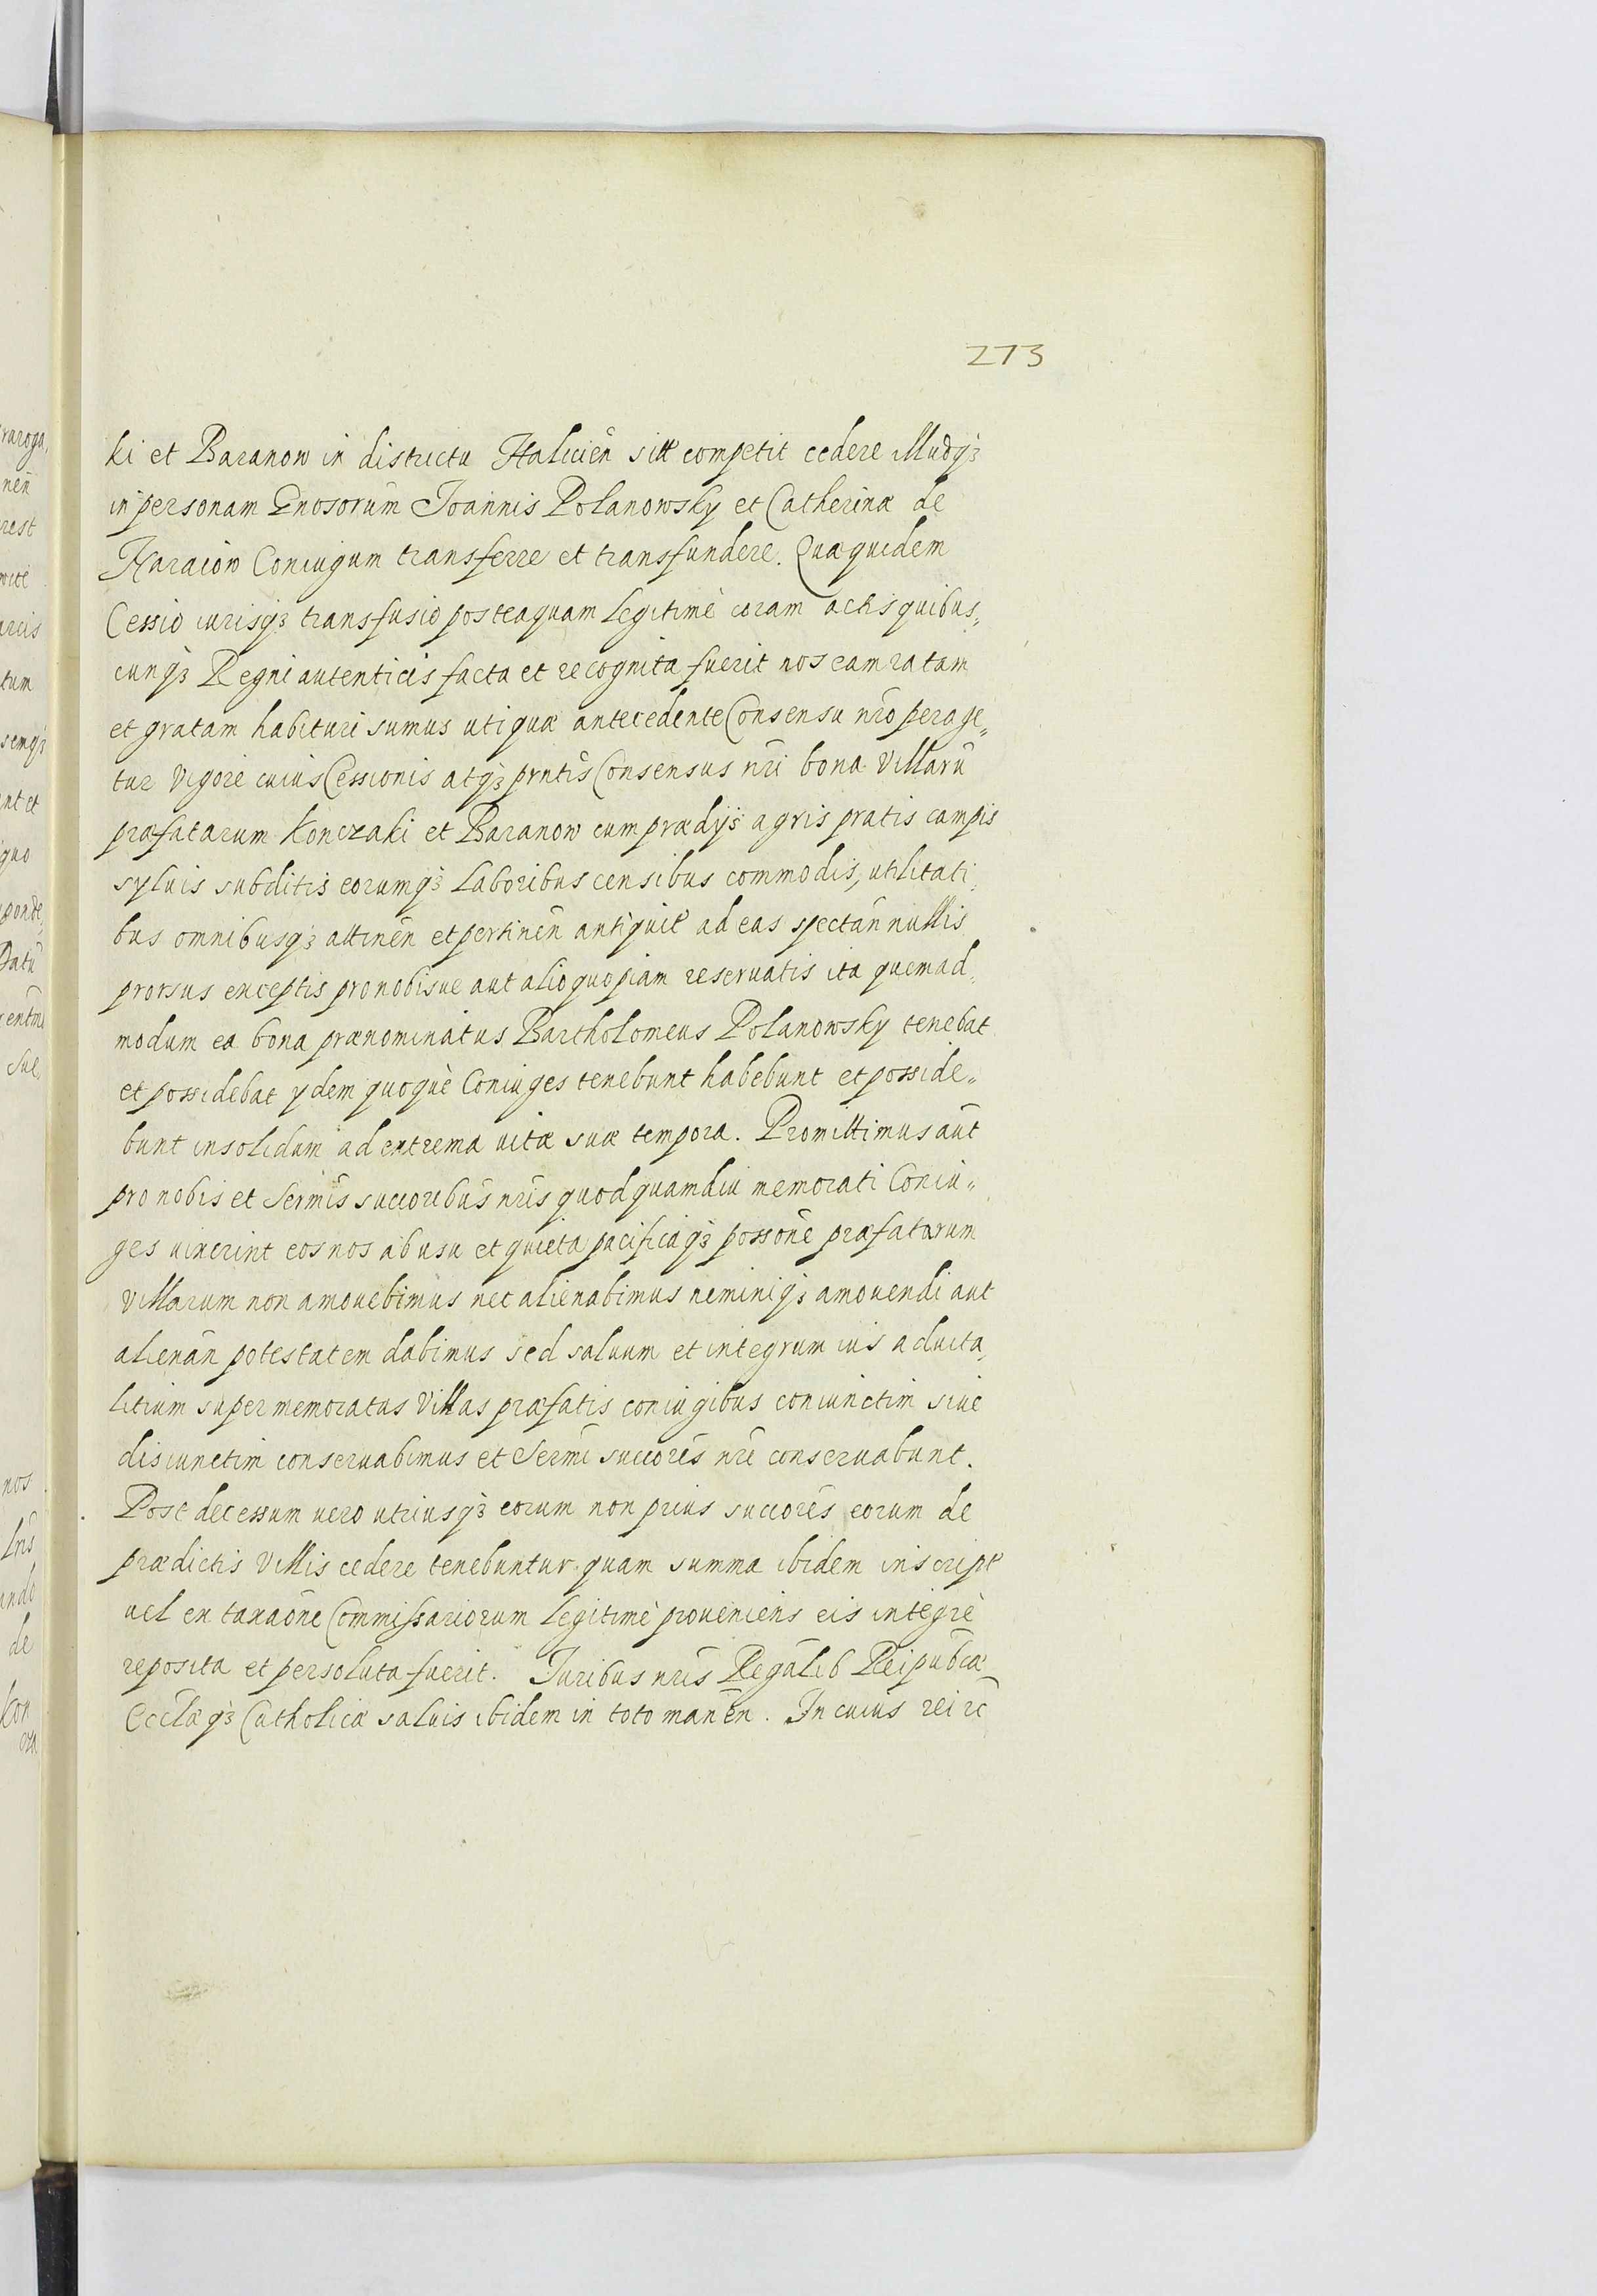 273
ki et Baranow in districtu Halicien̄ sitt̄ competit cedere illudq3
in personam Gnosorum Joannis Polanowsky et Catherinæ de
Haraiow Coniugum transferre et transfundere. Quæquidem
Cessio iurisq3 transfusio posteaquam legitimè coram actis quibus„
cunq3 Regni autenticis facta et recognita fuerit nos eam ratam
et gratam habituri sumus uti quæ antecedente Consensu nr̄o perage„
tur Vigore cuius Cessionis atq3 pr̄ntis Consensus nr̄i bona Villarū
præfatarum Konczaki et Baranow cum prædÿs agris pratis campis
syluis subditis eorumq3 laboribus censibus commodis, utilitati„
bus omnibusq3 attinen̄ et pertinen̄ antiquit̄ ad eas spectan̄ nullis
prorsus exceptis pro nobisue aut alio quopiam reseruatis ita quemad„
modum ea bona prænominatus Bartholomeus Polanowsky tenebat
et possidebat ydem quoquè Coniuges tenebunt habebunt et posside„
bunt insolidum ad extrema uitæ suæ tempora. Promittimus aūt
pro nobis et Serm̄is succoribus nr̄is quod quamdiu memorati Coniu„
ges uixerint eos nos ab usu et quieta pacificaq3 possōne præfatarum
villarum non amouebimus nec alienabimus neminiq3 amouendi aut
alienan̄ potestatem dabimus sed saluum et integrum ius aduita„
litium super memoratas Villas præfatis coniugibus coniunctim siue
disiunctim conseruabimus et Serm̄i succores nr̄i conseruabunt.
Post decessum uero utriusq3 eorum non prius succores eorum de
prædictis Villis cedere tenebuntur quam summa ibidem inscript̄
uel ex taxaōne Commissariorum legitimè proueniens eis integrè
reposita et persoluta fuerit. Juribus nr̄is Regalib Reipub̄cæ
Eccl̄æq3 Catholicæ saluis ibidem in toto manen̄. In cuius rei